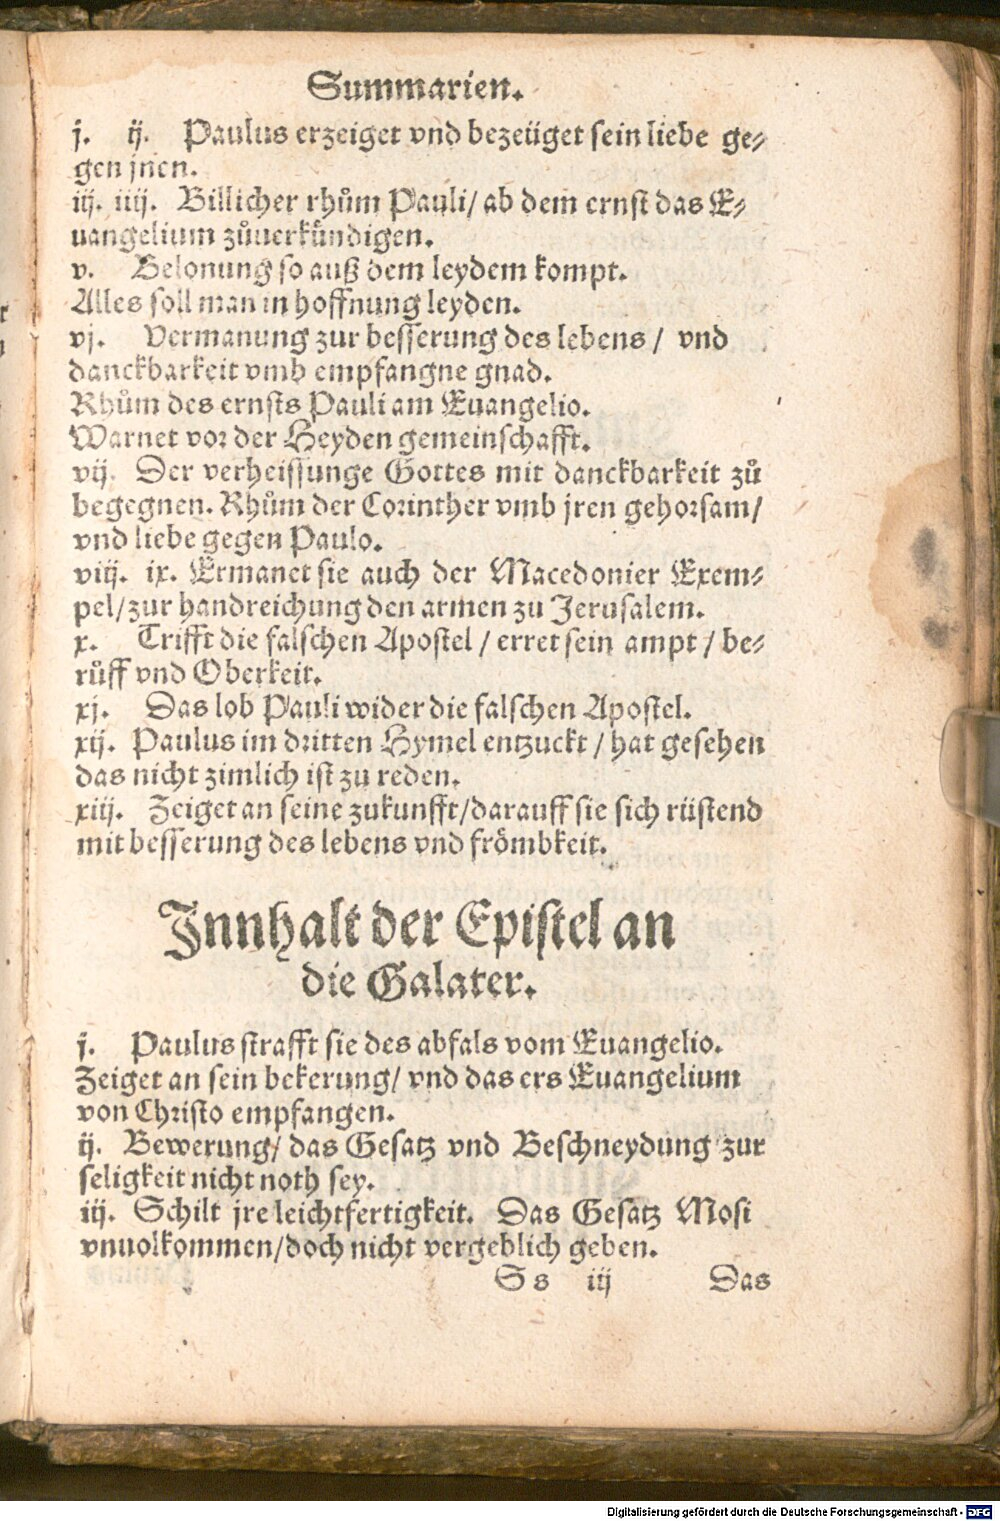 Summarien.
j. ij. Paulus erzeiget vnd bezeüget sein liebe ge⸗
gen jnen.
iij. iiij. Billicher rhům Pauli/ ab dem ernst das E⸗
uangelium zůuerkündigen.
v. Belonung so auß dem leydem kompt.
Alles soll man in hoffnung leyden.
vj. Vermanung zur besserung des lebens / vnd
danckbarkeit vmb empfangne gnad.
Rhům des ernsts Pauli am Euangelio.
Warnet vor der Heyden gemeinschafft.
vij. Der verheissunge Gottes mit danckbarkeit zů
begegnen. Rhům der Corinther vmb jren gehorsam/
vnd liebe gegen Paulo.
viij. ix. Ermanet sie auch der Macedonier Exem⸗
pel/zur handreichung den armen zu Jerusalem.
x. Trifft die falschen Apostel / erret sein ampt / be⸗
růff vnd Oberkeit.
xj. Das lob Pauli wider die falschen Apostel.
xij. Paulus im dritten Hymel entzuckt / hat gesehen
das nicht zimlich ist zu reden.
xiij. Zeiget an seine zukunfft/darauff sie sich rüstend
mit besserung des lebens vnd frömbkeit.
Jnnhalt der Epistel an
die Galater.
j. Paulus strafft sie des abfals vom Euangelio.
Zeiget an sein bekerung/ vnd das ers Euangelium
von Christo empfangen.
ij. Bewerung/ das Gesatz vnd Beschneydung zur
seligkeit nicht noth sey.
iij. Schilt jre leichtfertigkeit. Das Gesatz Mosi
vnuolkommen/doch nicht vergeblich geben.
Ss iij Das
Digitalisierung gefördert durch die Deutsche Forschungsgemeinschaft - DFG